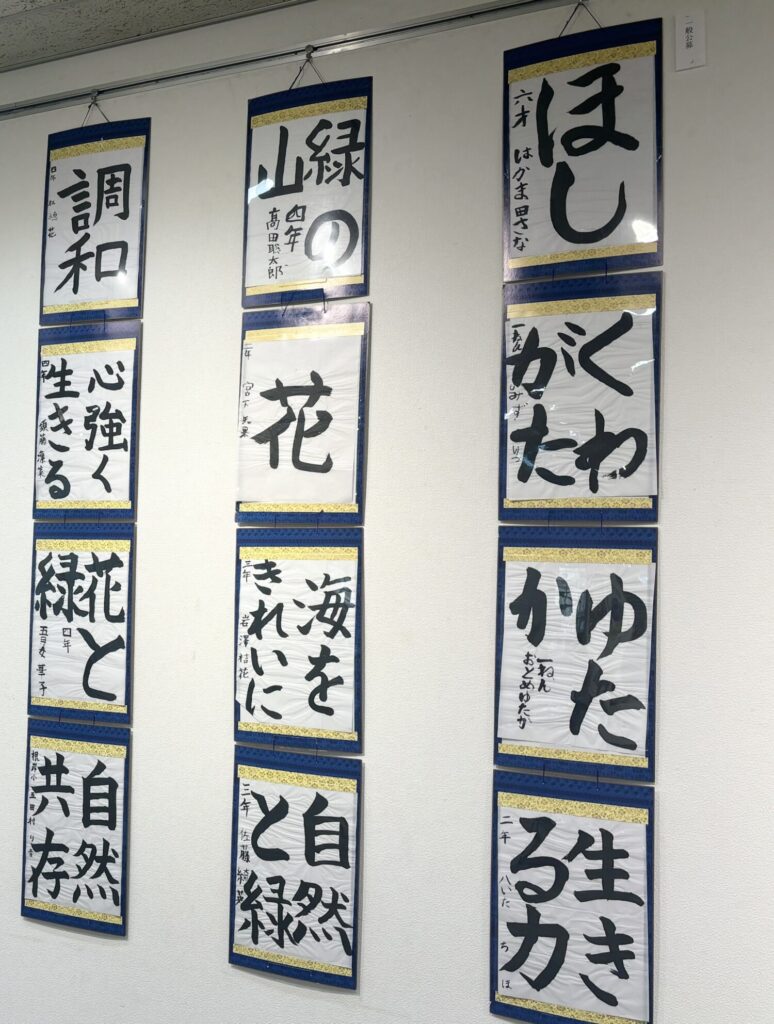 一般公募
ほし
六才 はかま田さな
くわ
がた
ゆた
か
一ねん
おとめゆたか
生き
る力
二年 八いた ちほ
緑の
山
四年
高田聡太郎
花
二年 宮下
海を
きれいに
三年 岩澤桔花
自然
と緑
三年 佐藤綺
調和
四年
心強く
生きる
四年
花と
緑
四年
自然
共存